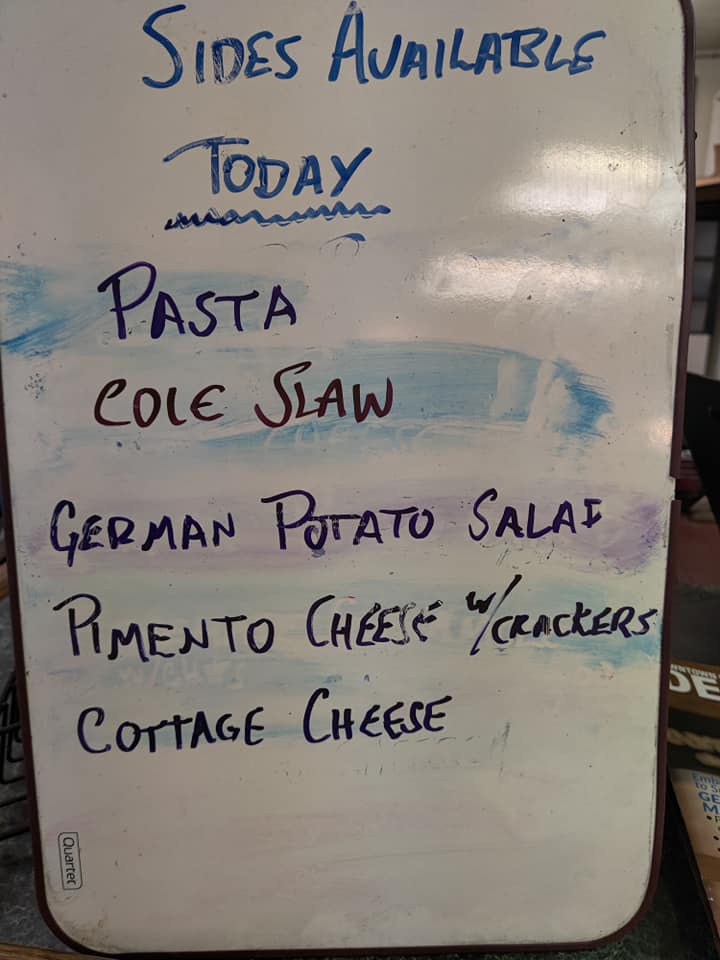 SIDES AVAILABLE
TODAY
PASTA
COLE SLAW
GERMAN POTATO SALAD
PIMENTO CHEESE W/CRACKERS
COTTAGE CHEESE
Quartet